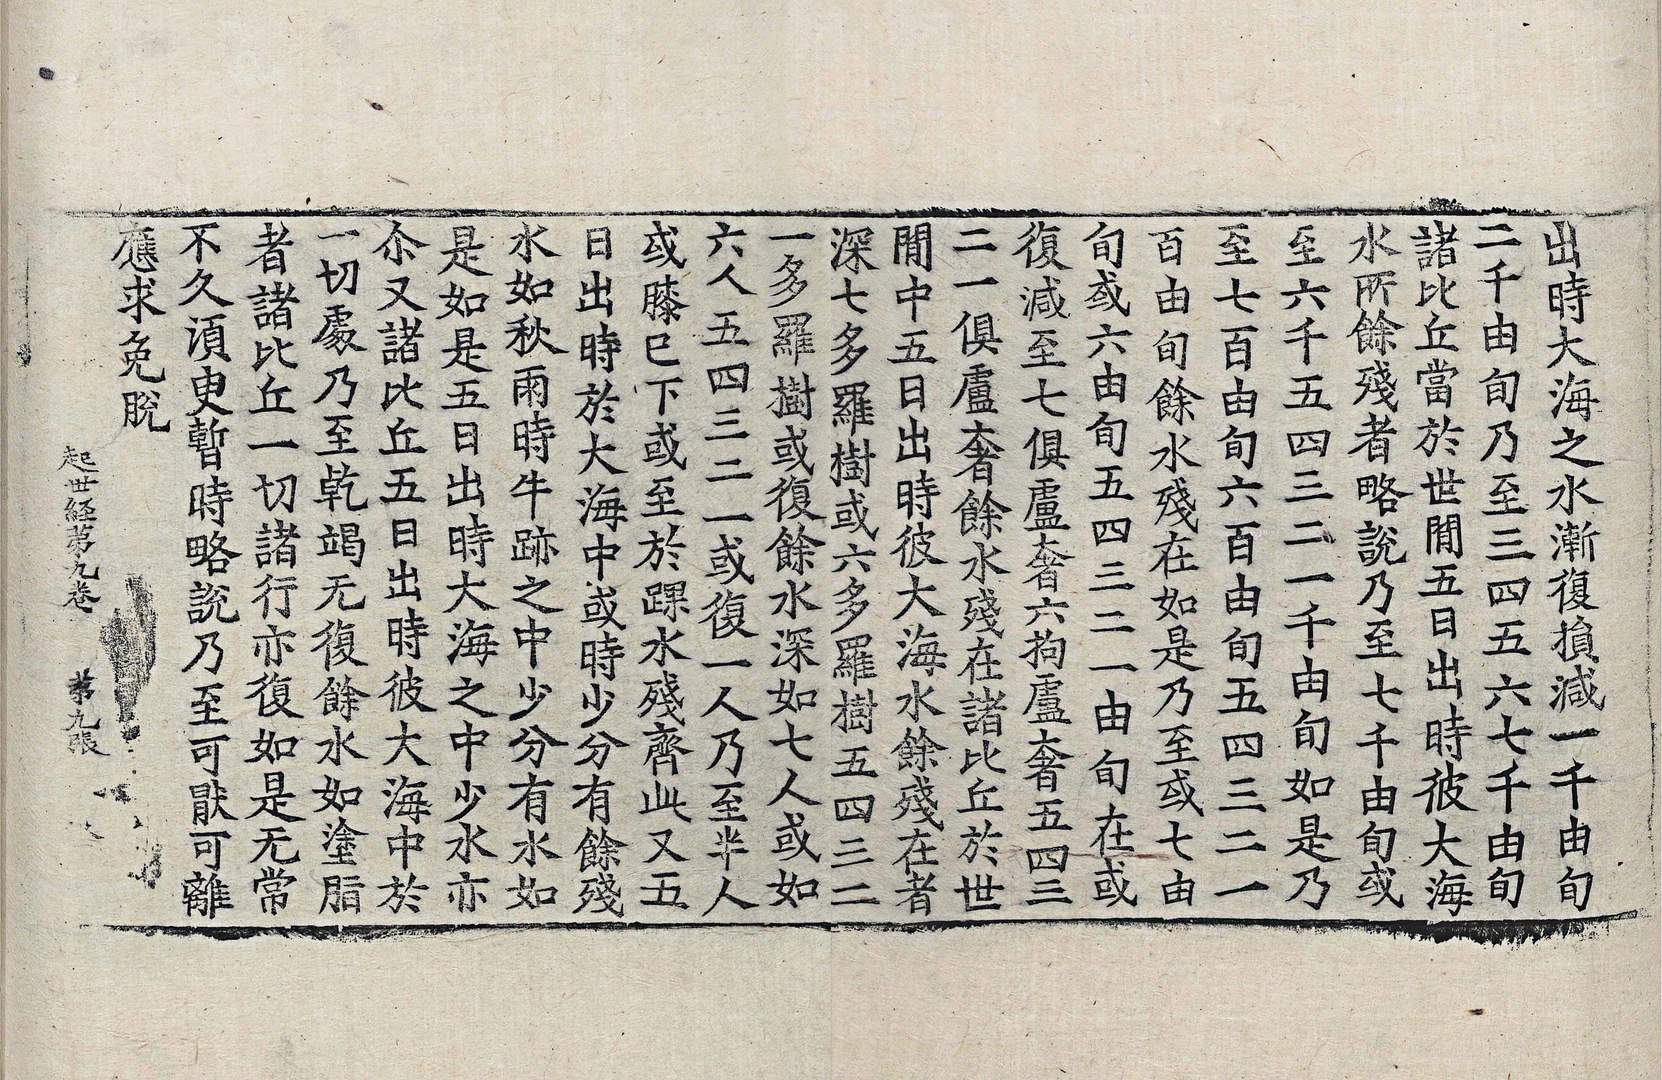 出時大海之水漸復損減一千由旬
二千由旬乃至三四五六七千由旬
諸比丘當於世閒五日出時彼大海
水所餘殘者略說乃至七千由旬或
至六千五四三二一千由旬如是乃
至七百由旬六百由旬五四三二一
百由旬餘水殘在如是乃至或七由
旬或六由旬五四三二一由旬在或
復減至七俱盧奢六拘盧奢五四三
二一俱盧奢餘水殘在諸比丘於世
閒中五日出時彼大海水餘殘在者
深七多羅樹或六多羅樹五四三二
一多羅樹或復餘水深如七人或如
六人五四三二一或復一人乃至半人
或膝已下或至於踝水殘齊此又五
日出時於大海中或時少分有餘殘
水如秋雨時牛跡之中少分有水如
是如是五日出時大海之中少水亦
尒又諸比丘五日出時彼大海中於
一切處乃至乾竭无復餘水如塗脂
者諸比丘一切諸行亦復如是无常
不久須臾暫時略說乃至可猒可離
應求免脫
起世経苐九卷 苐九張